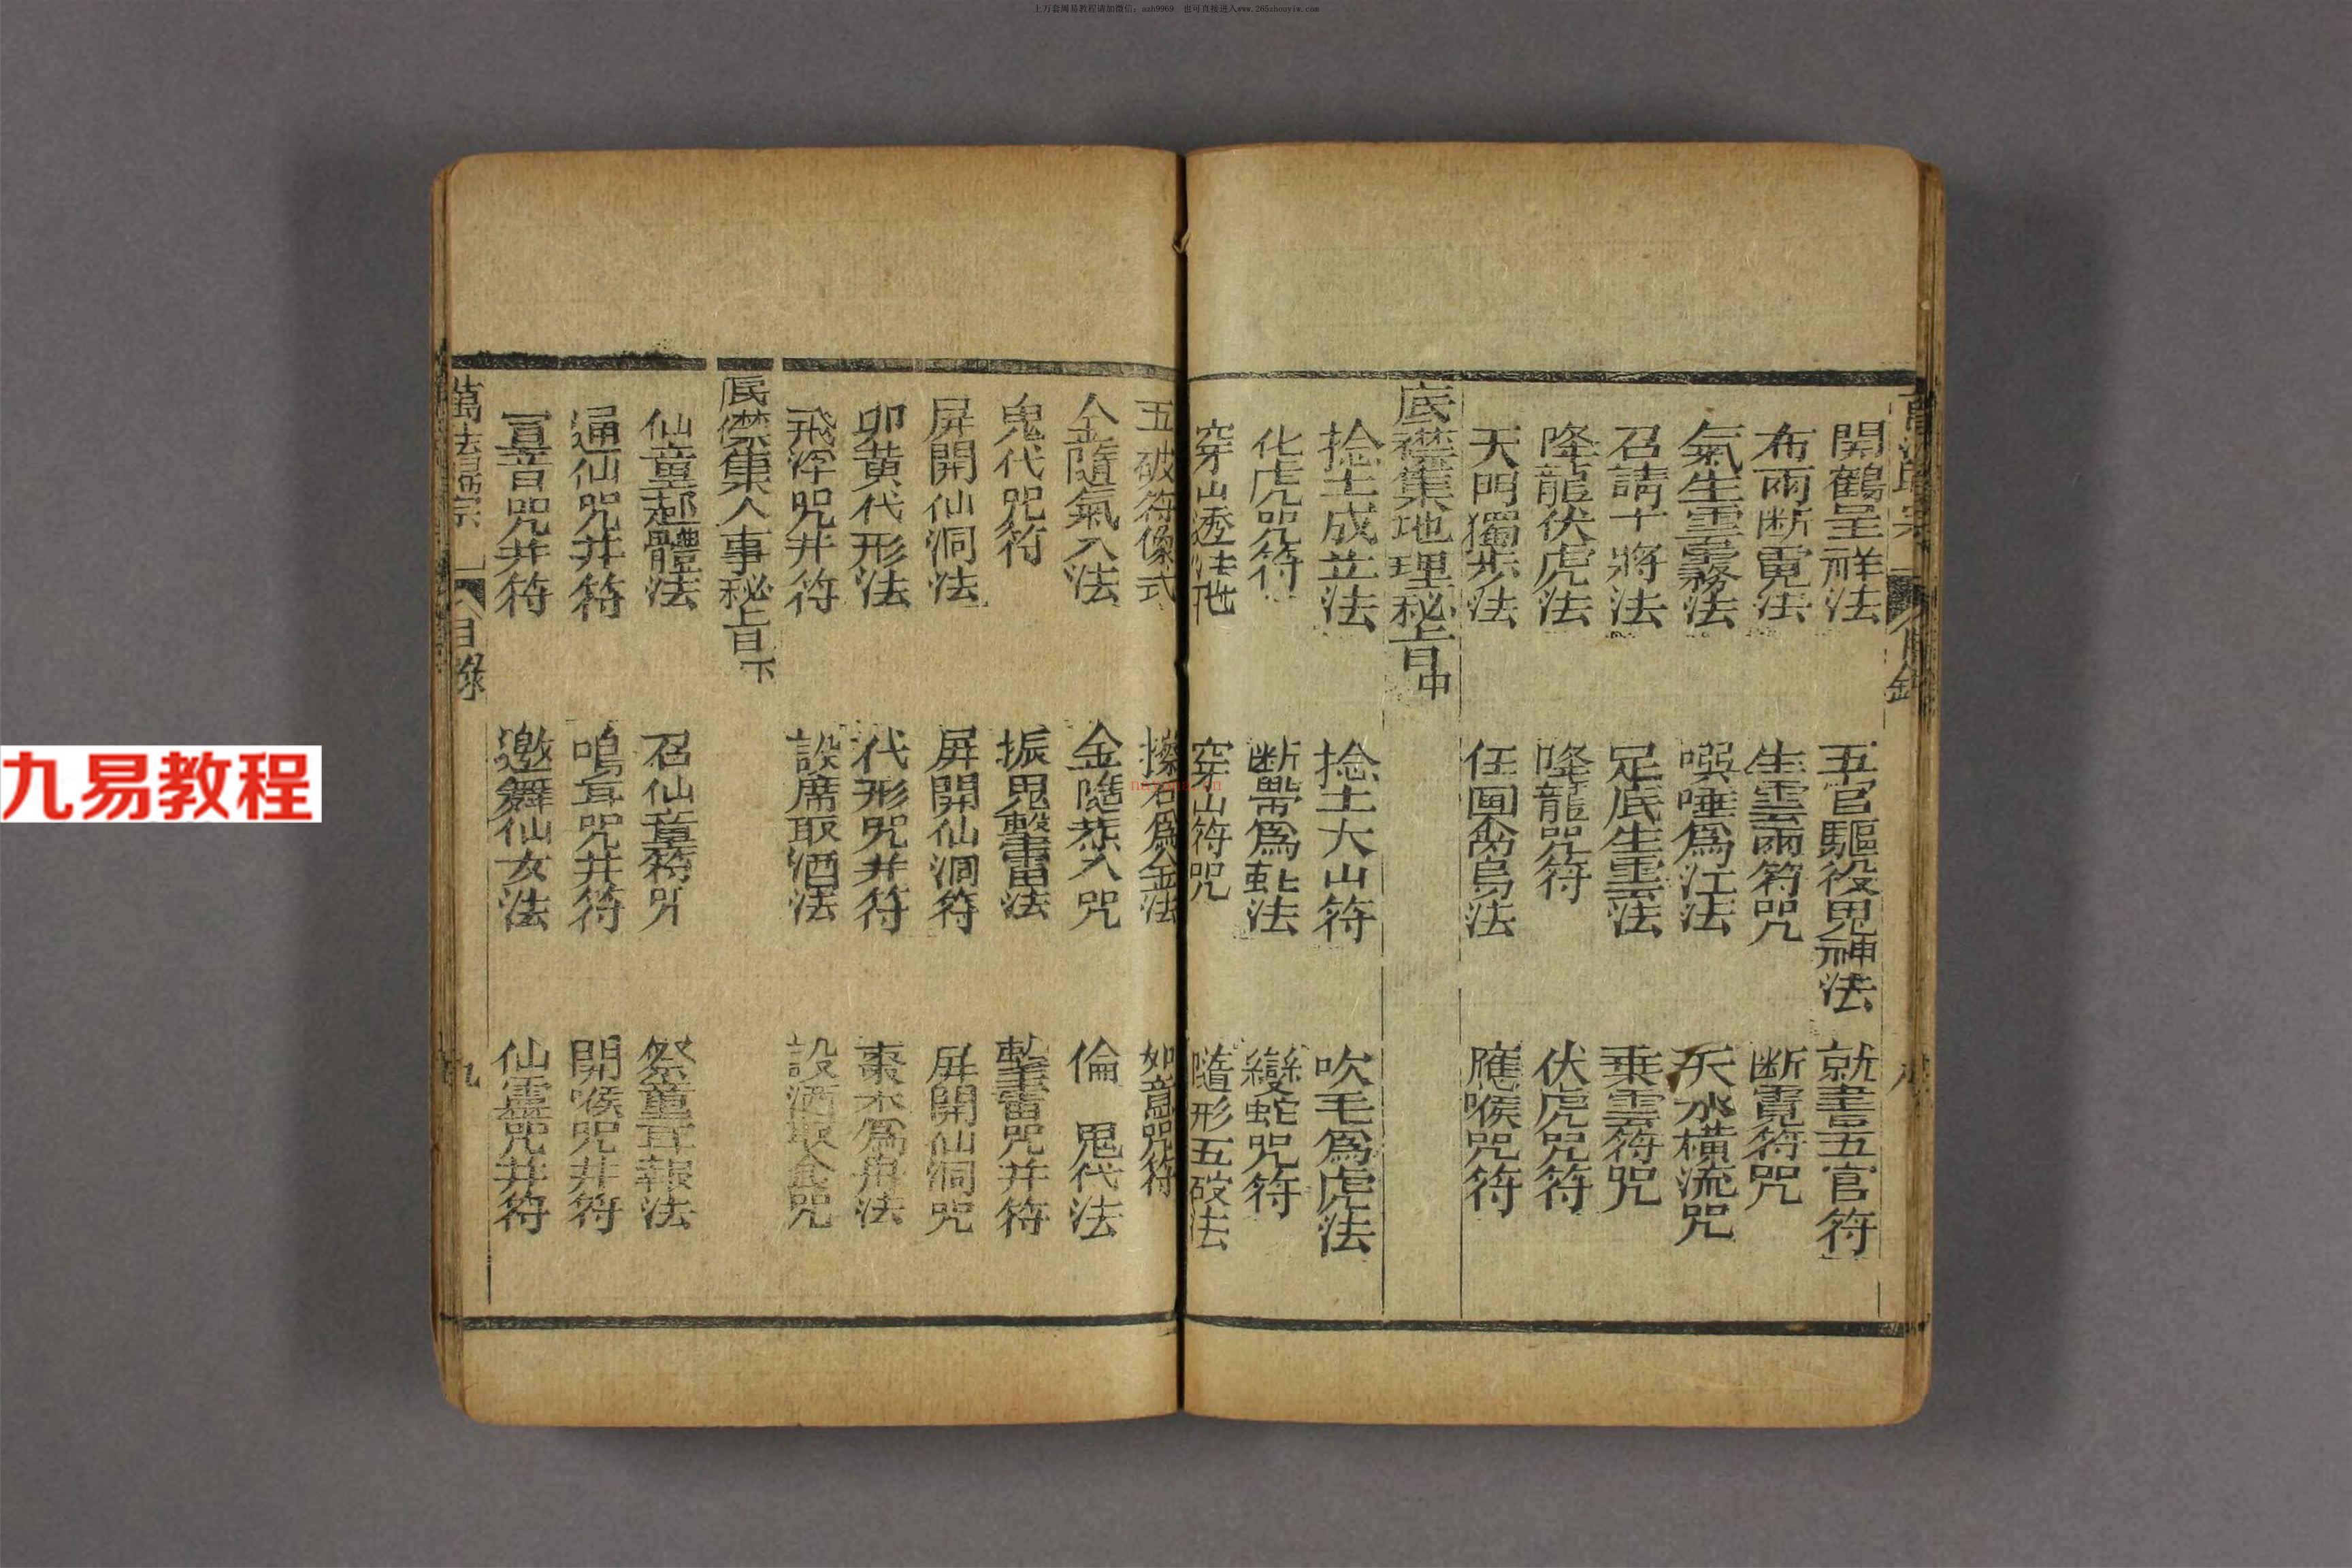 上万套周易教程请加微信：axh9969 也可直接进入www.265zhouyiw.com
九易教程
開鶴呈祥法 五官驅役鬼神法 就書五官符
布雨断霓法 生雲雨符咒 断霓符咒
氣生雲霧法 噀唾爲江法 天水橫流咒
召請十將法 足底生雲法 乘雲符咒
降龍伏虎法 降龍咒符 伏虎咒符
天門獨步法 任画禽鳥法 應喉咒符
底襟集地理秘旨中
捻土成山法 捻土大山符 吹毛爲虎法
化虎咒符 断帶爲蛇法 變蛇咒符
穿山透地法 穿山符咒 隨形五破法
五破符像式 擦石爲金法 如意咒符
金隨氣入法 金隨炁入咒 倫鬼代法
鬼代咒符 振鬼擊雷法 擊雷咒并符
屏開仙洞法 屏開仙洞符 屏開仙洞咒
卯黄代形法 代形咒并符 棗木爲舟法
飛浮咒并符 設席取酒法 設酒取食咒
底襟集人事秘旨下
仙童起體法 召仙童符咒 祭童耳報法
通仙咒并符 鳴耳咒井符 開喉咒井符
宣音咒并符 邀舞仙女法 仙靈咒并符
萬法歸宗 目錄 九